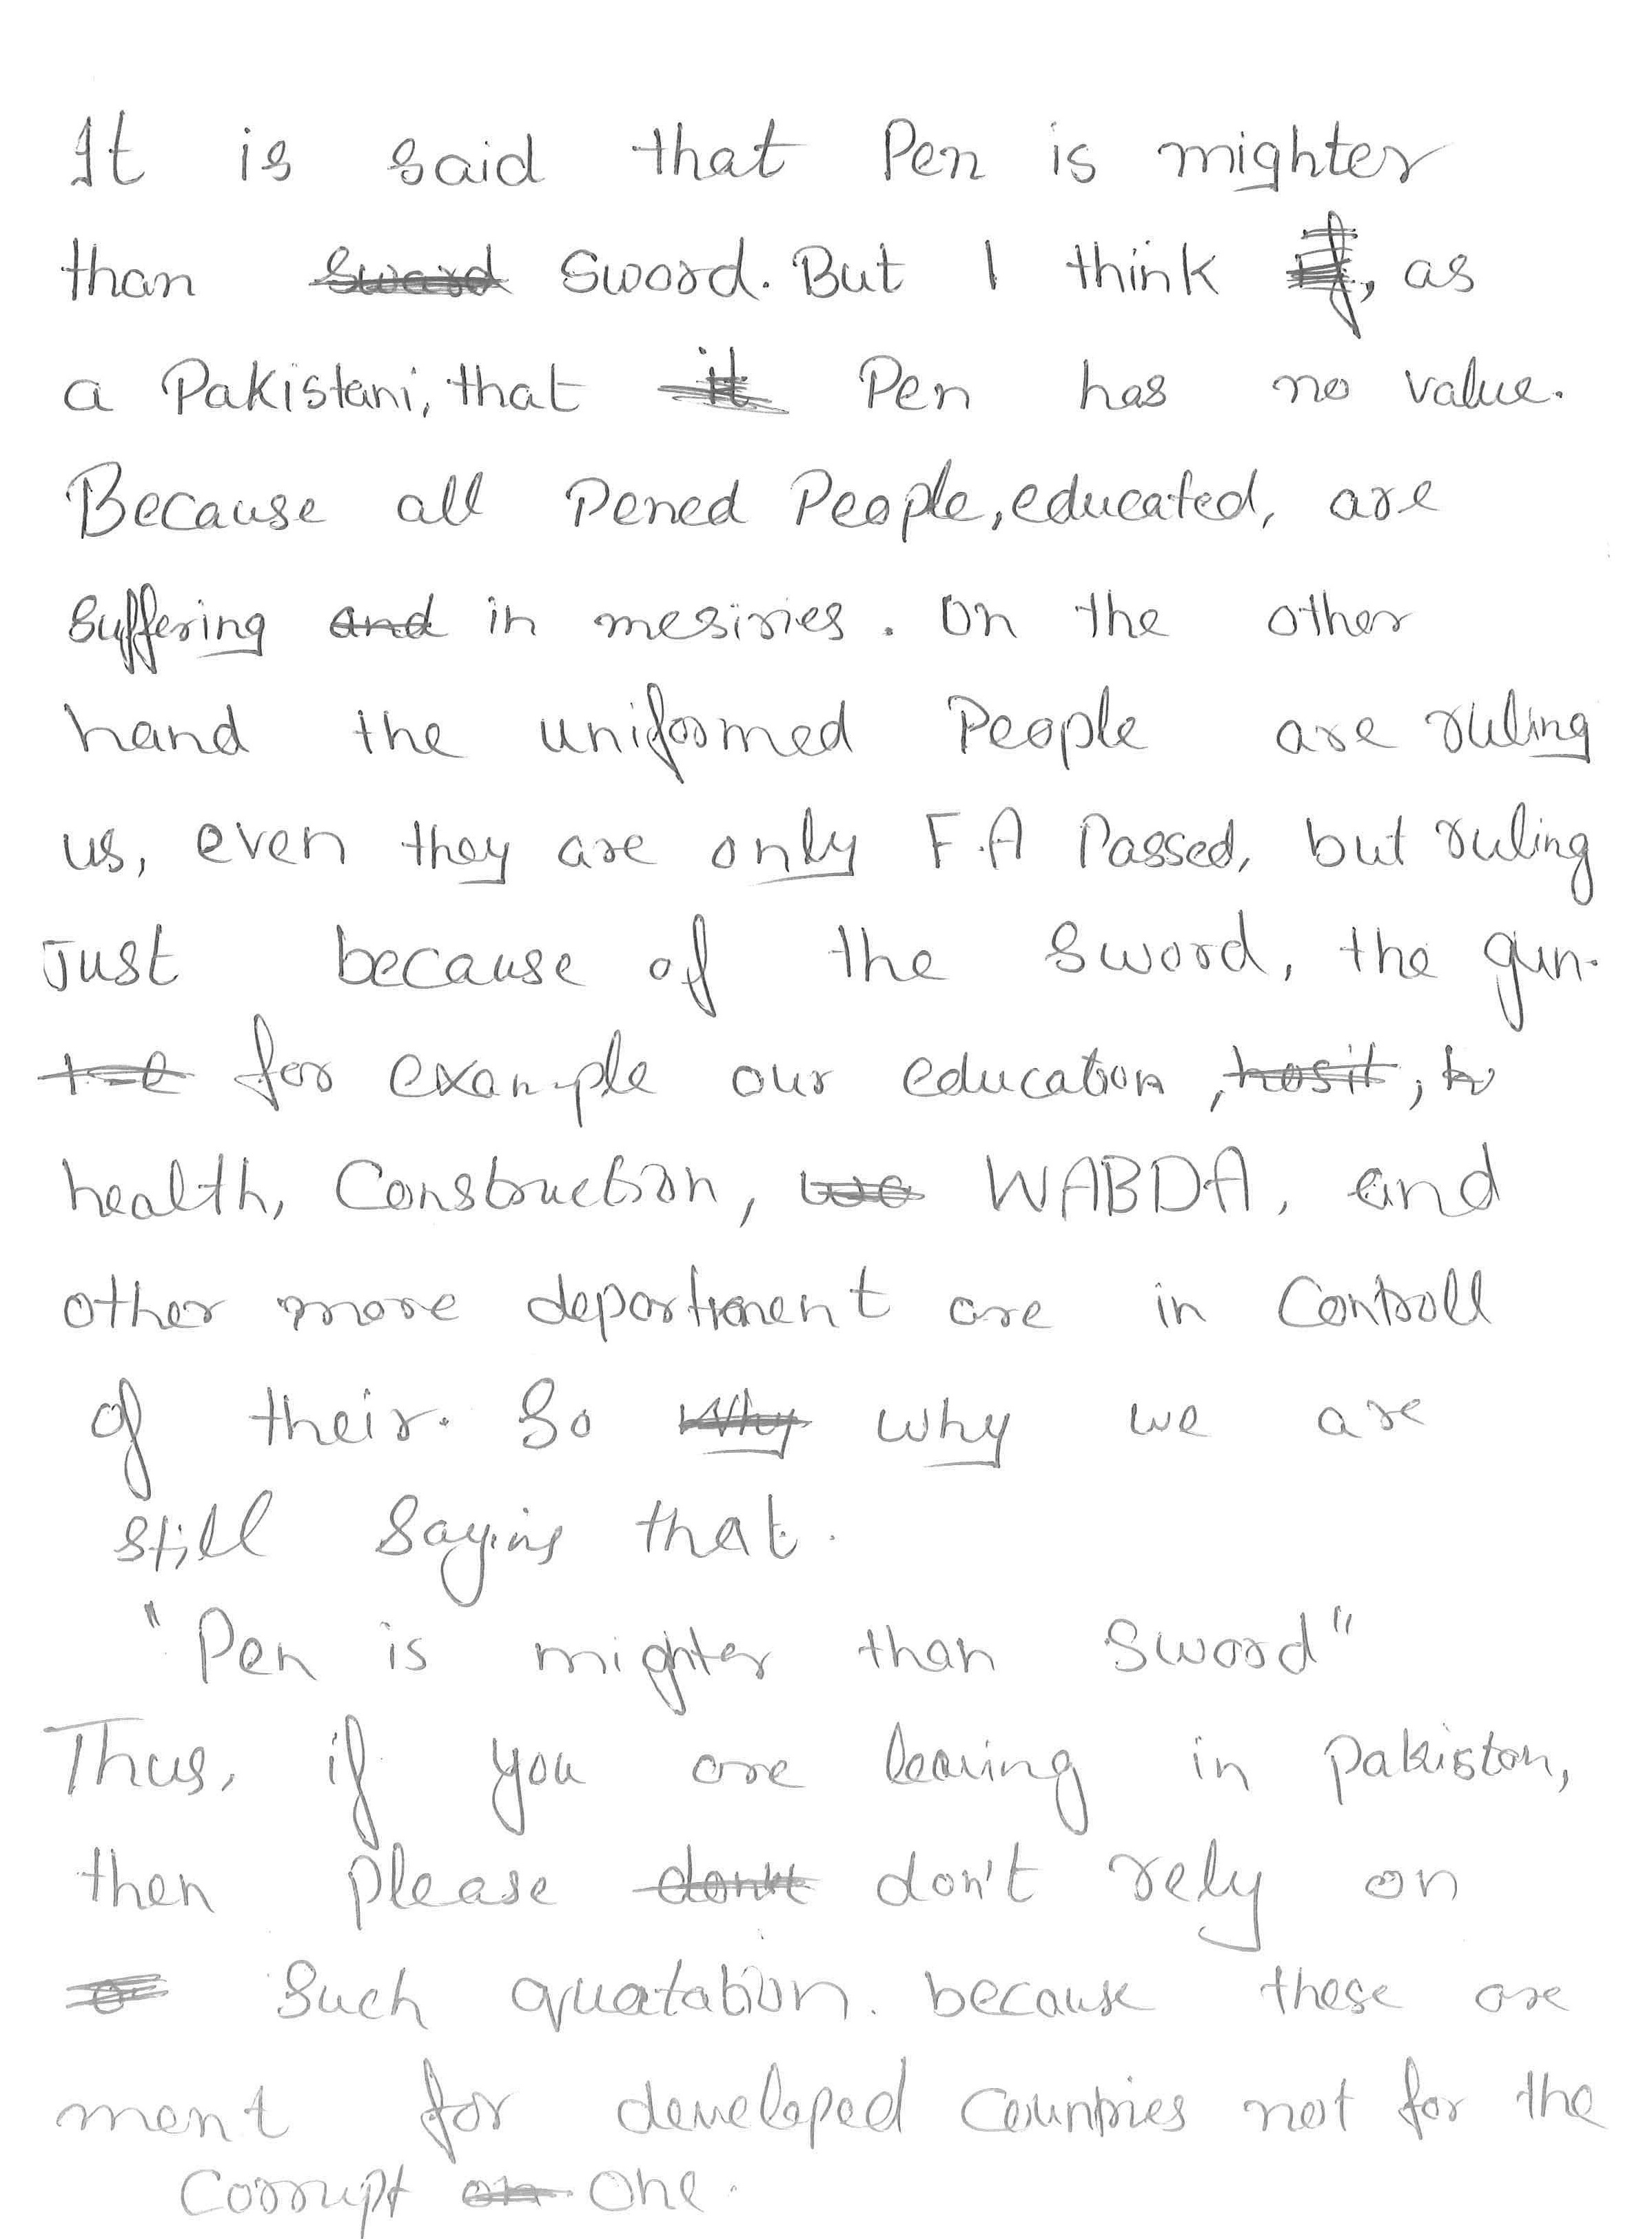 It is said that Pen is mighter
than sword. But I think , as
a Pakistani, that Pen has no value.
Because all Pened People, educated, are
suffering in mesiries. On the other
hand the uniformed People are ruling
us, even they are only F.A Passed, but ruling
Just because of the sword, the gun.
for example our education , ,
health, Construction, WABDA, and
other more department are in Controll
of their. So why we are
still saying that.
"Pen is mighter than sword"
Thus, if you are leaving in pakistan,
then please don't rely on
such quatation. because these are
ment for developed countries not for the
Corrupt one.